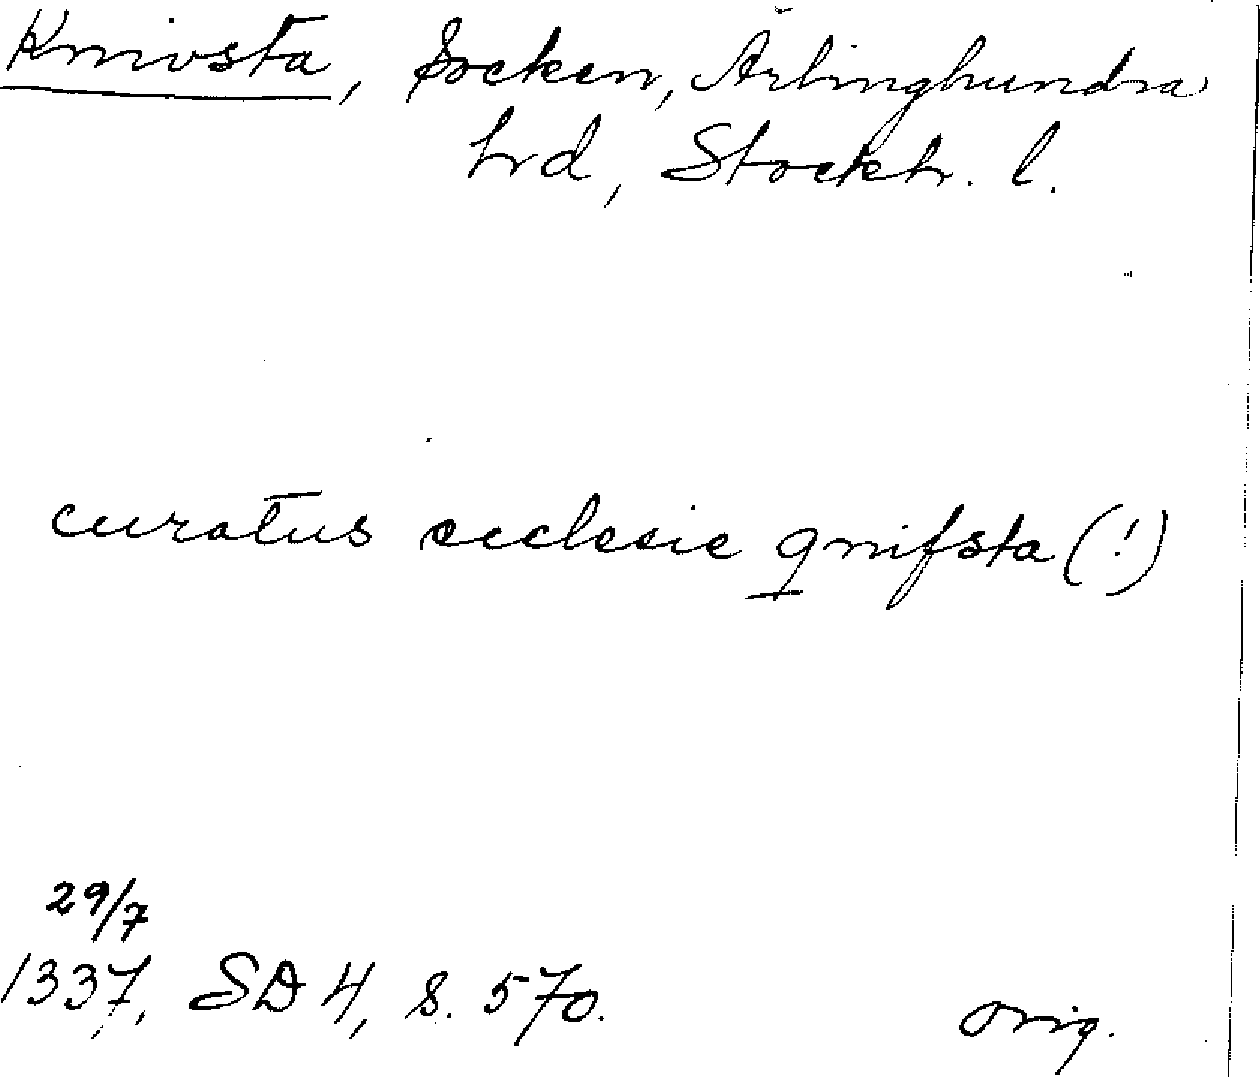 Knivsta, Socken, Ärlinghundra
hrd, Stockh. l.
curatus ecclesie qnifsta (!)
29/7
1337, SD 4, s. 570.
orig.